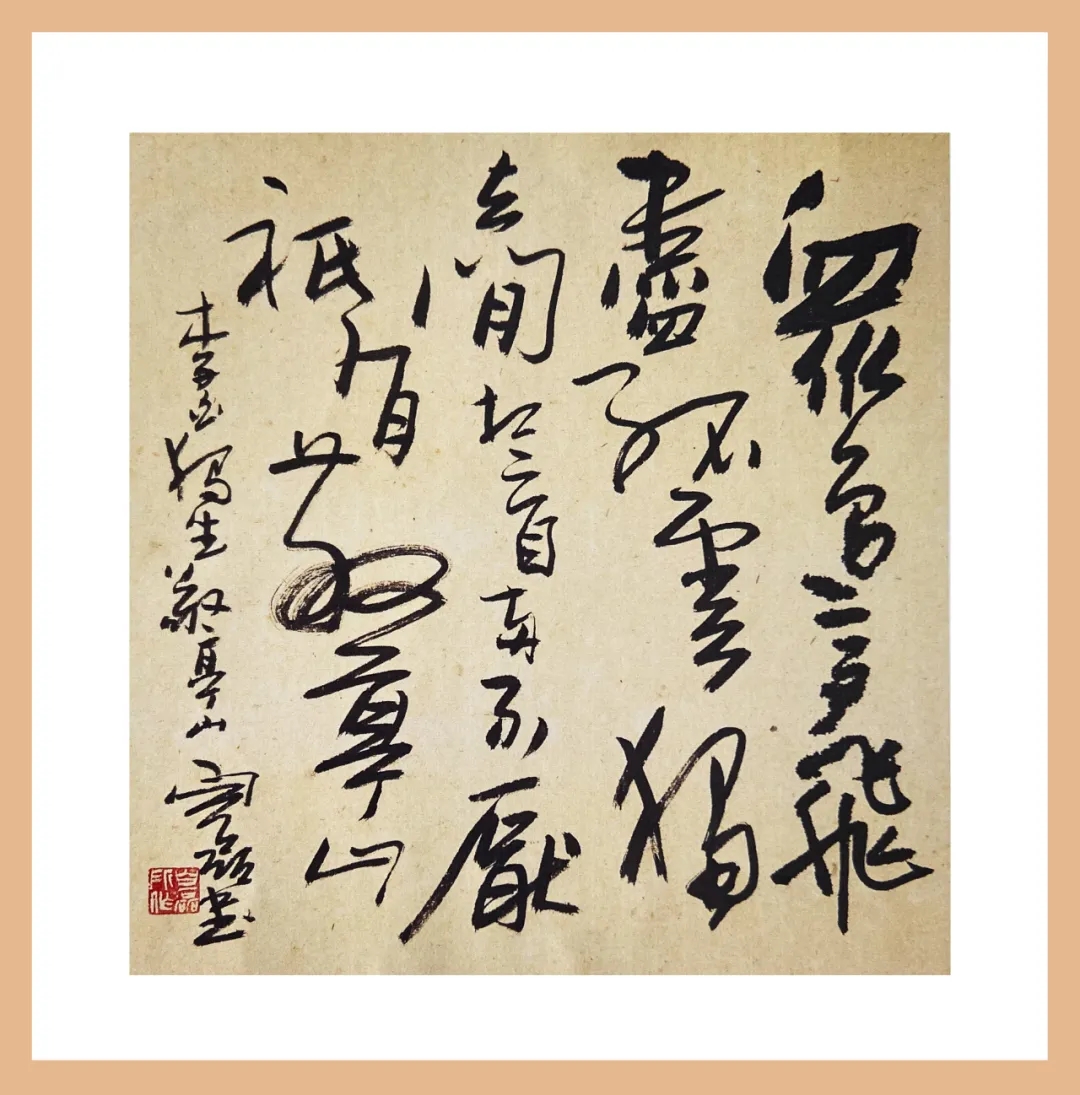 眾鳥高飛
盡孤雲獨
去閒相看兩不厭
祇有敬亭山
李白獨坐敬亭山 磊書
白磊所作